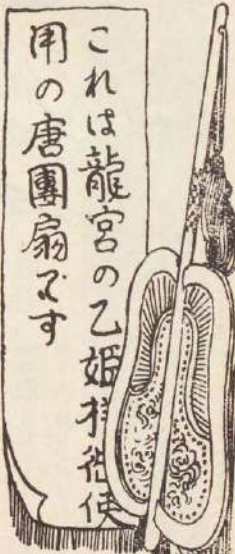 これは龍宮の乙姫样御使
用の唐團扇です